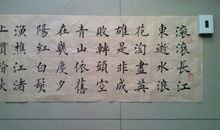 滾滾長江
東逝水浪
花淘盡英
雄是非成
敗轉頭空
青山依舊
在幾度夕
陽紅白髮
漁樵江渚
上慣看秋